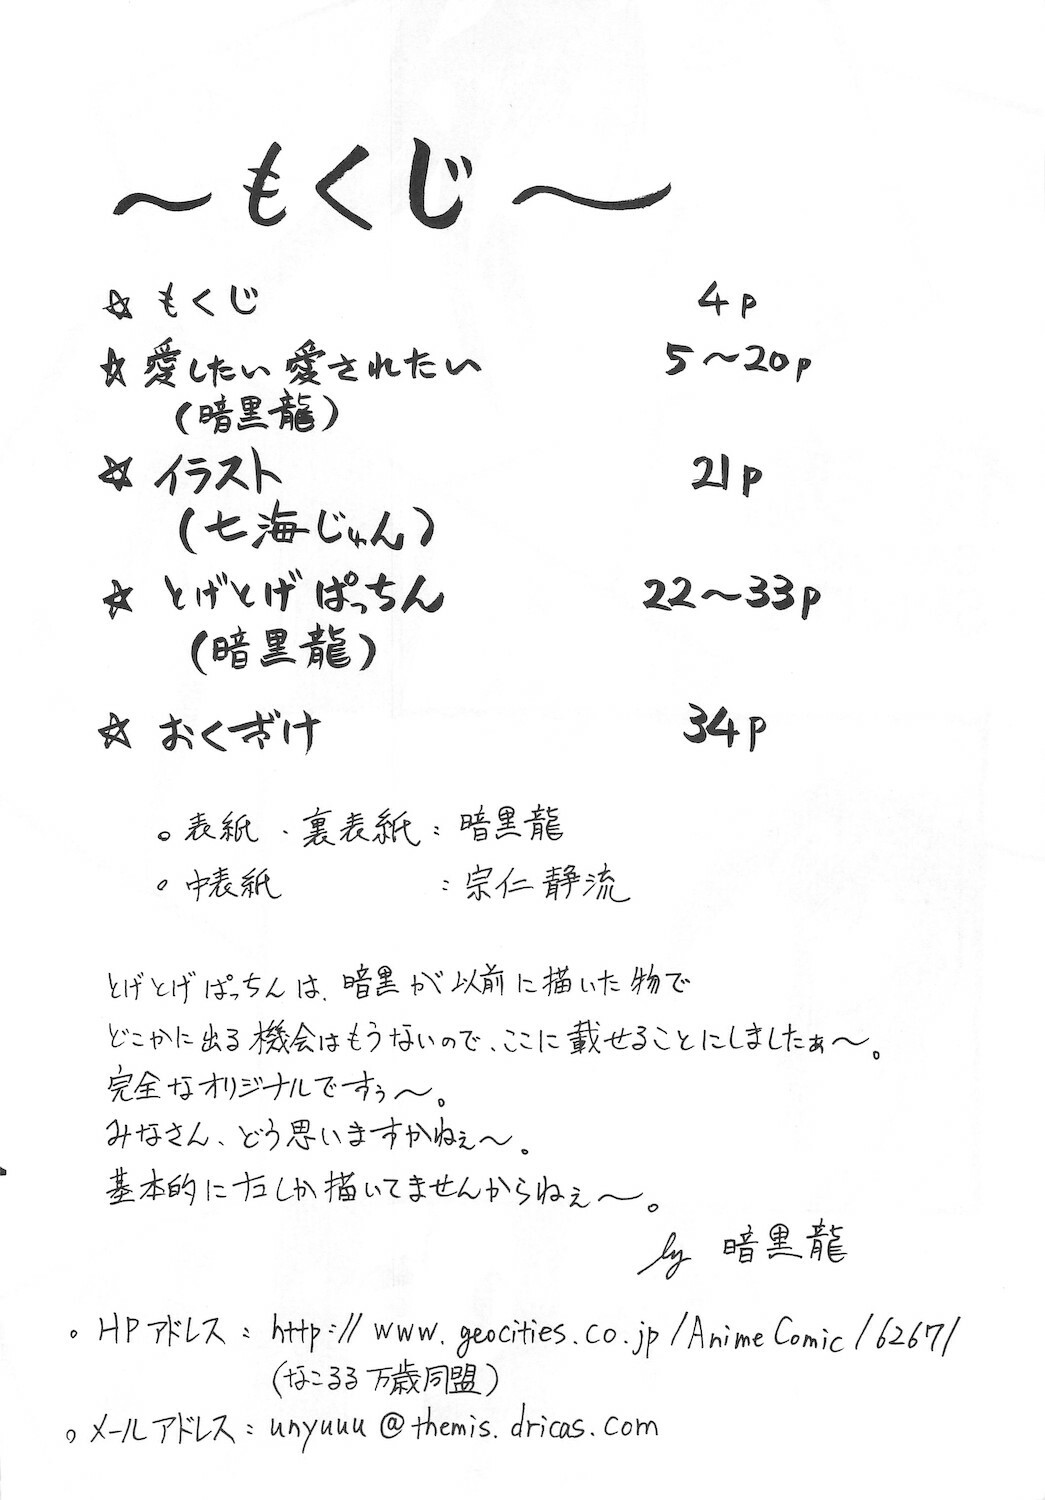 ～もくじ～
☆ もくじ 4p
☆ 愛したい 愛されたい 5～20p
(暗黒龍)
☆ イラスト 21p
(七海じゅん)
☆ とげとげぱっちん 22～33p
(暗黒龍)
☆ おくづけ 34p
。表紙・裏表紙：暗黒龍
。中表紙 ：宗仁静流
とげとげぱっちんは、暗黒が以前に描いた物で
どこかに出る機会はもうないので、ここに載せることにしましたぁ～。
完全なオリジナルですぅ～。
みなさん、どう思いますかねぇ～。
基本的にナコしか描いてませんからねぇ～。
by 暗黒龍
。HPアドレス：http://www.geocities.co.jp/AnimeComic/6267/
(なこるる万歳同盟)
。メールアドレス：unyuuu@themis.dricas.com